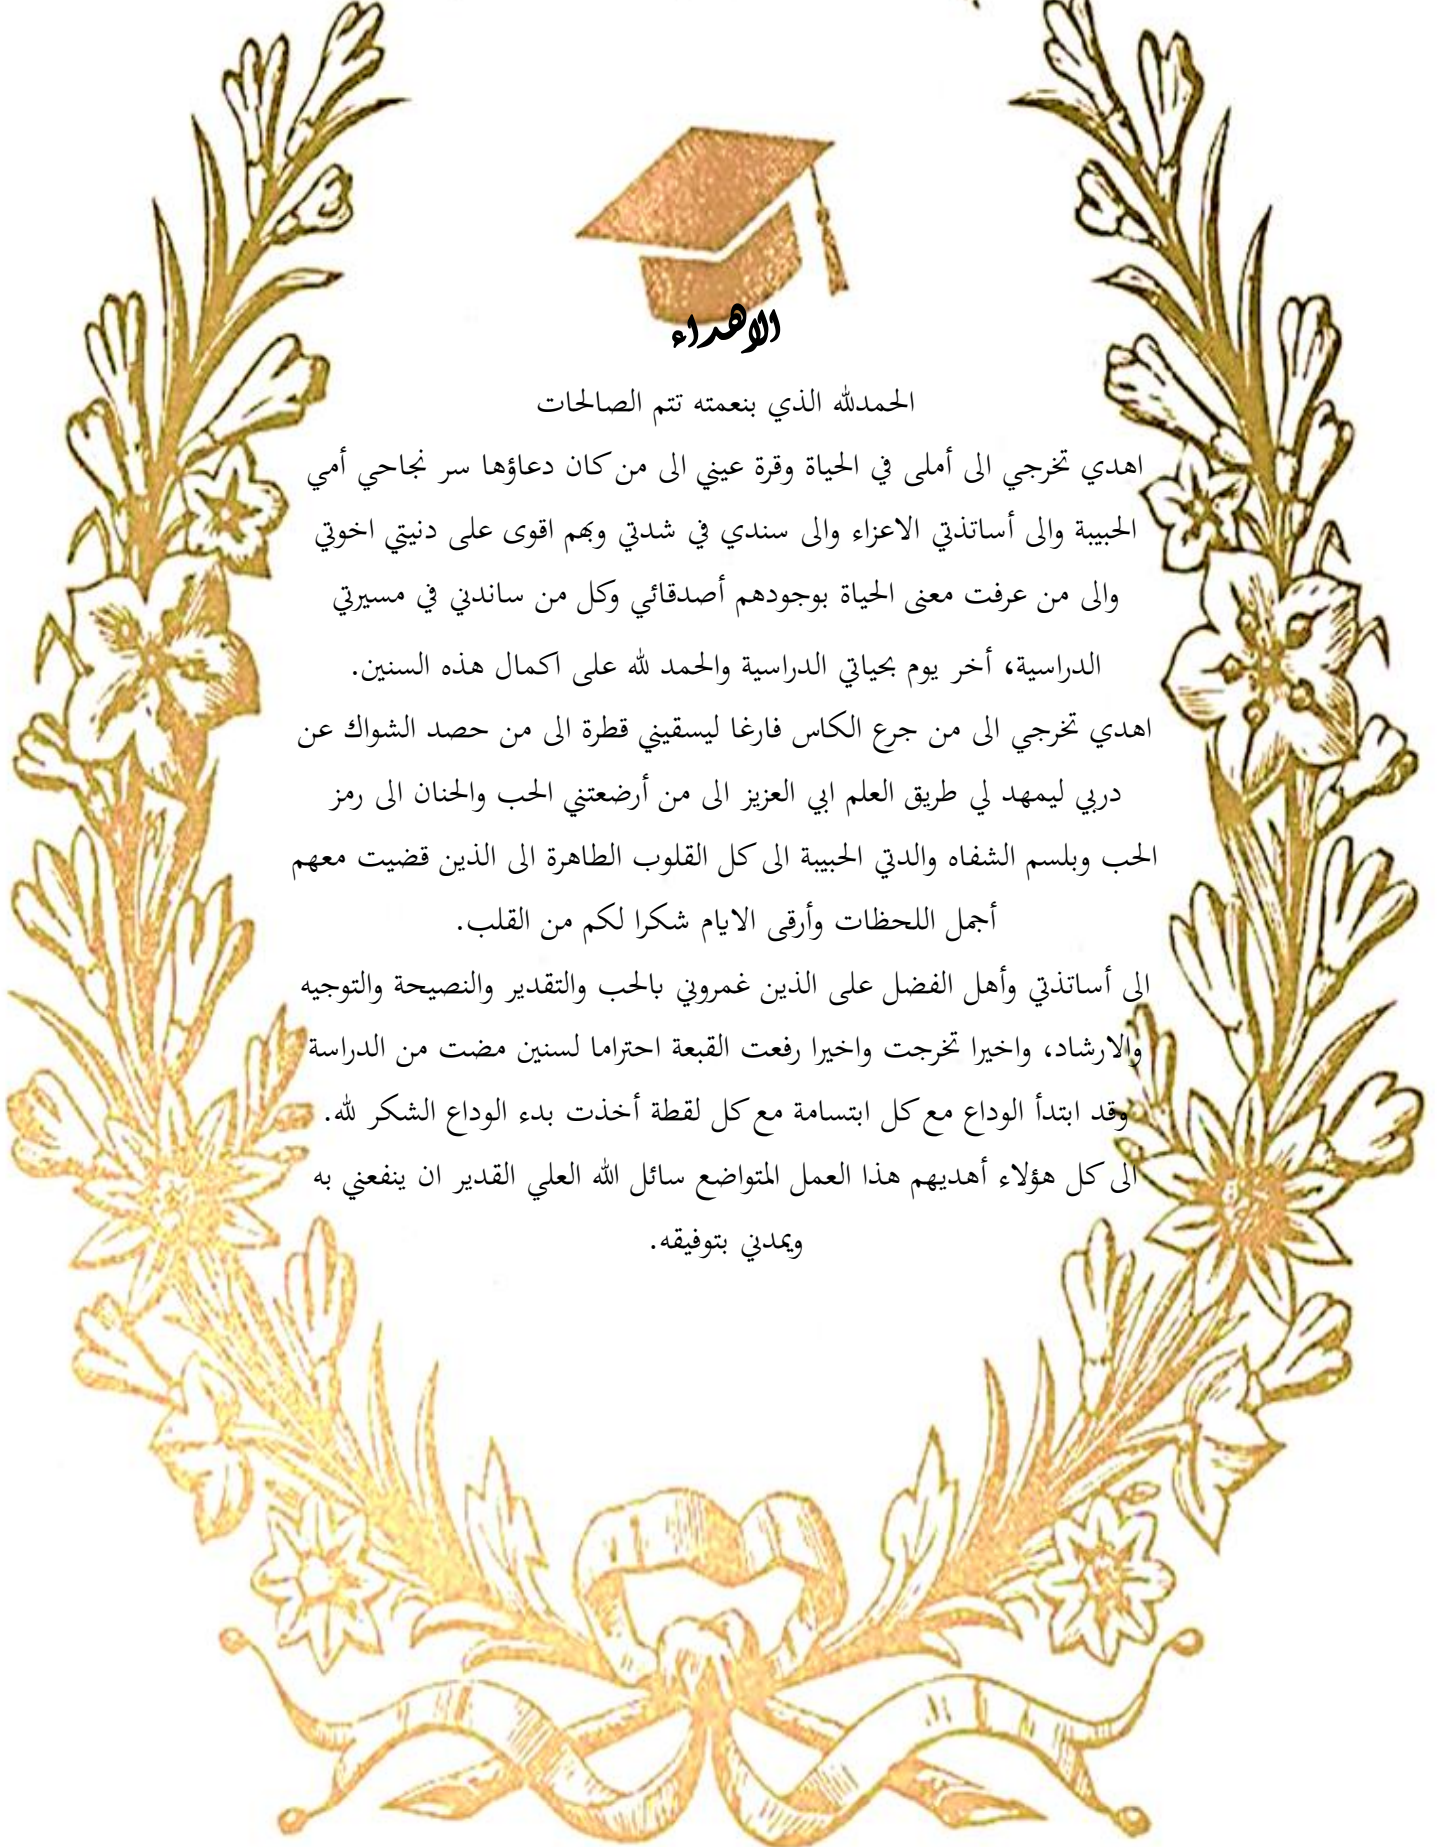 الاهداء
الحمدلله الذي بنعمته تتم الصالحات
اهدي تخرجي الى أملى في الحياة وقرة عيني الى من كان دعاؤها سر نجاحي أمي
الحبيبة والى أساتذتي الاعزاء والى سندي في شدتي وبهم اقوى على دنيتي اخوتي
والى من عرفت معنى الحياة بوجودهم أصدقائي وكل من ساندني في مسيرتي
الدراسية، أخر يوم بحياتي الدراسية والحمد لله على اكمال هذه السنين.
اهدي تخرجي الى من جرع الكاس فارغا ليسقيني قطرة الى من حصد الشواك عن
دربي ليمهد لي طريق العلم ابي العزيز الى من أرضعتني الحب والحنان الى رمز
الحب وبلسم الشفاه والدتي الحبيبة الى كل القلوب الطاهرة الى الذين قضيت معهم
أجمل اللحظات وأرقى الايام شكرا لكم من القلب.
الى أساتذتي وأهل الفضل على الذين غمروني بالحب والتقدير والنصيحة والتوجيه
والارشاد، واخيرا تخرجت واخيرا رفعت القبعة احتراما لسنين مضت من الدراسة
وقد ابتدأ الوداع مع كل ابتسامة مع كل لقطة أخذت بدء الوداع الشكر لله.
الى كل هؤلاء أهديهم هذا العمل المتواضع سائل الله العلي القدير ان ينفعني به
ويمدني بتوفيقه.